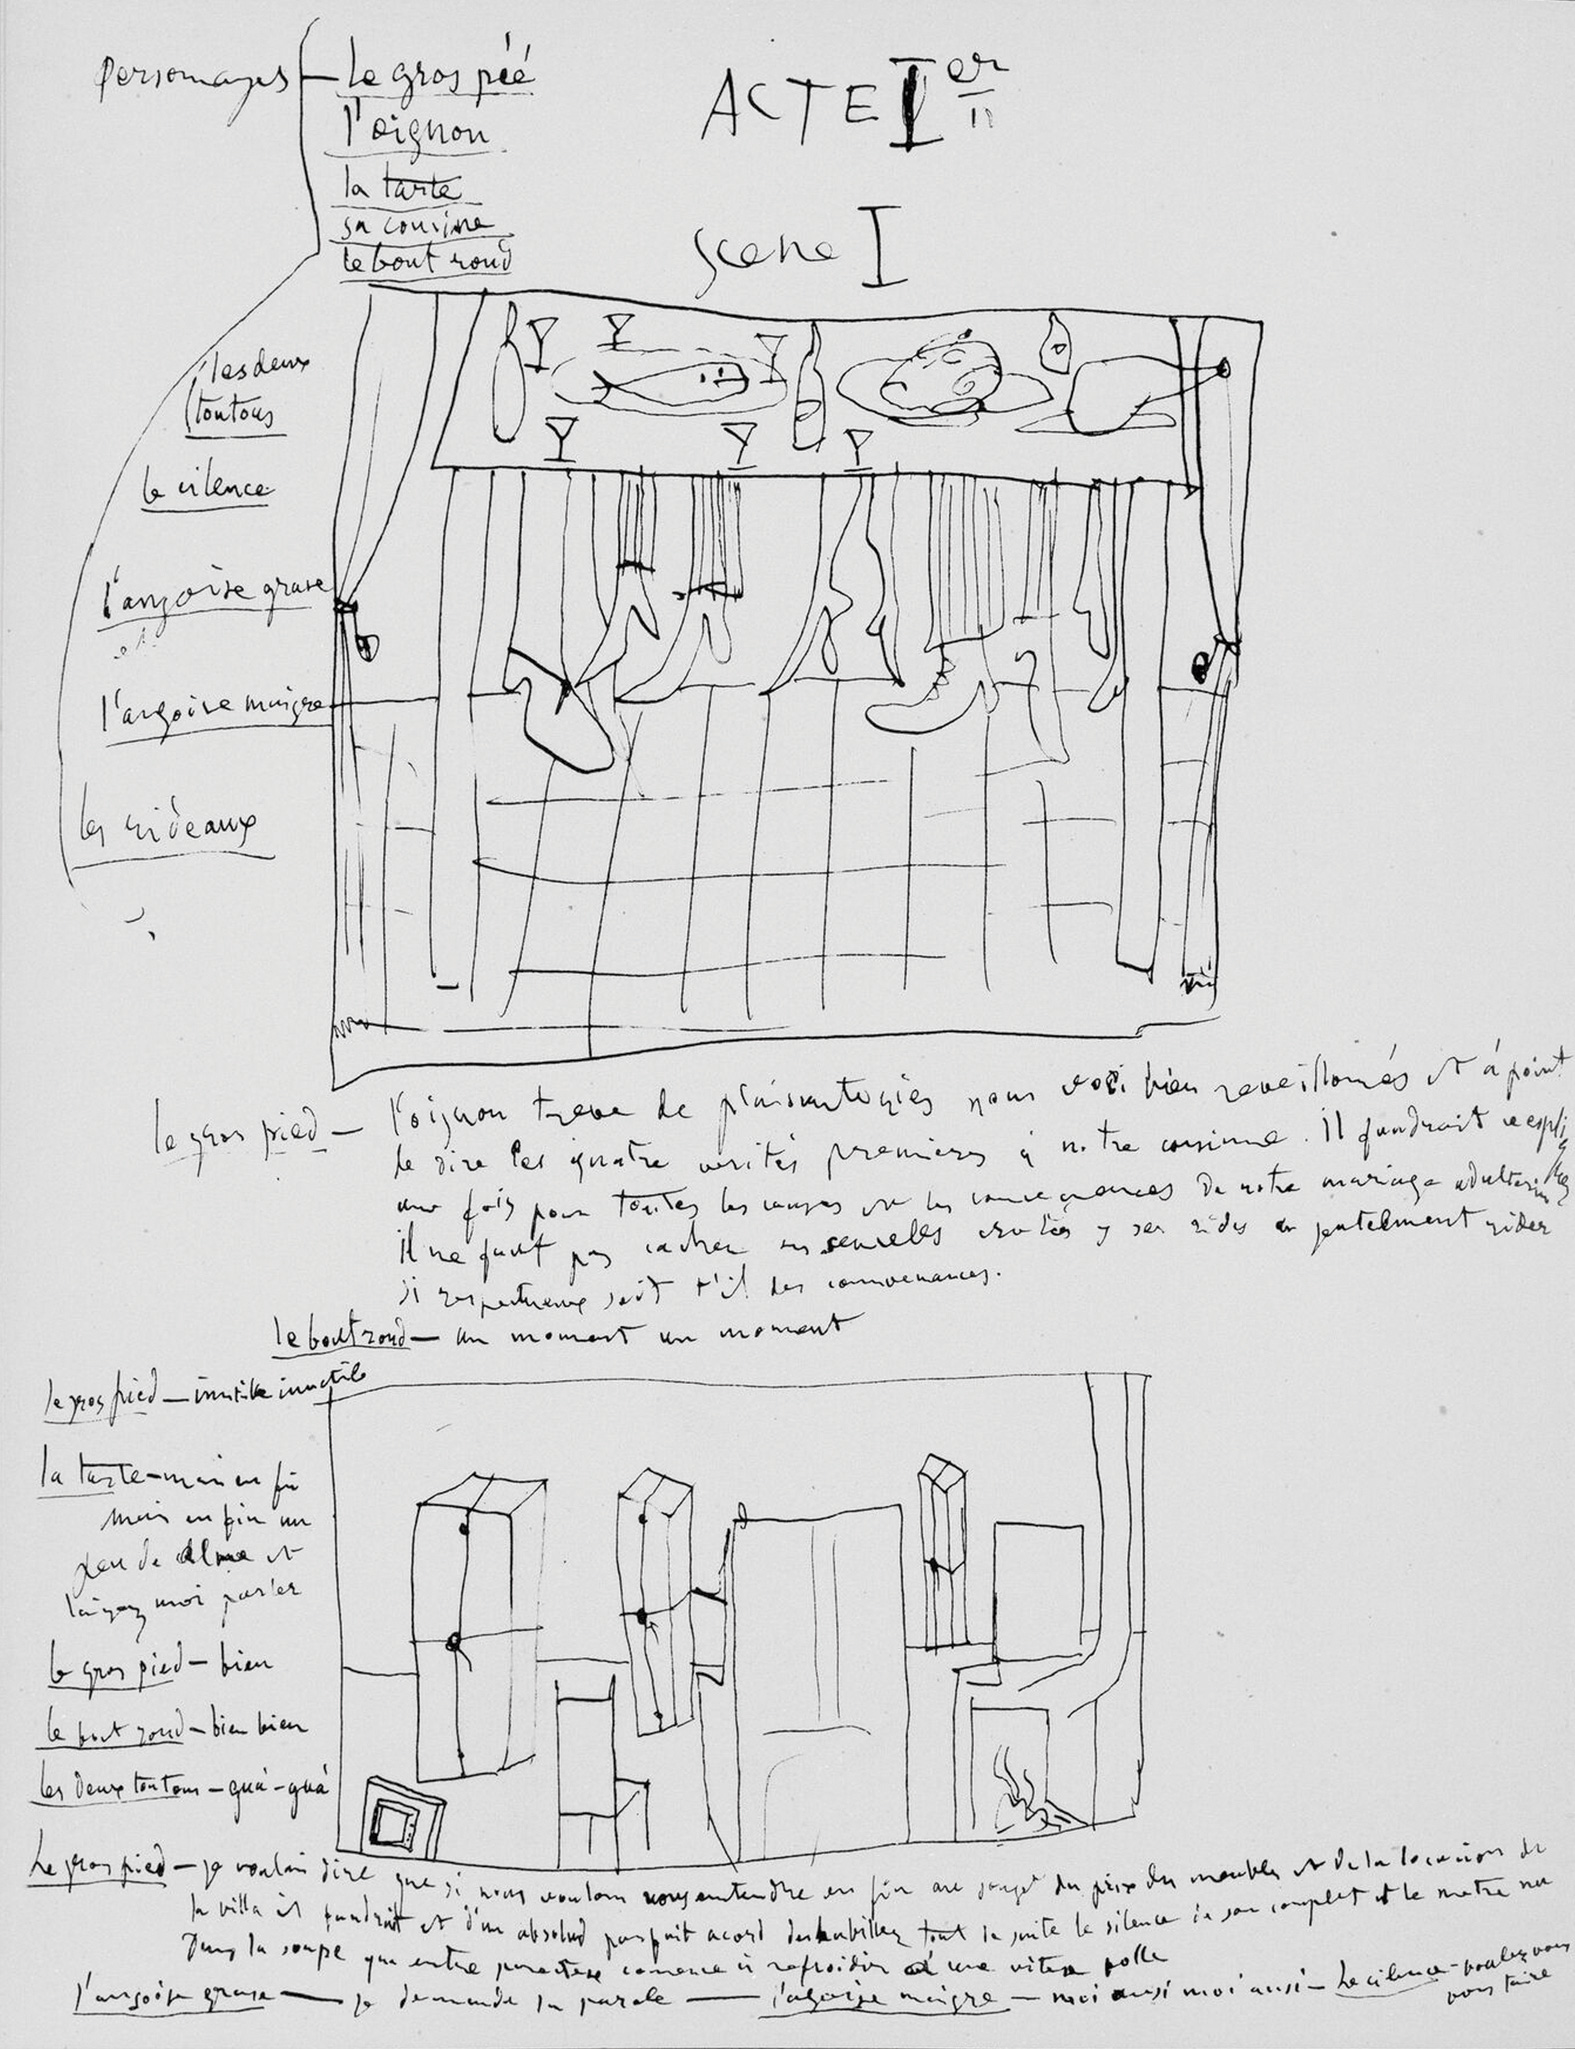 Personages
Le gros péé
l'oignon
la tarte
sa cousine
le bout rond
ACTE Ier
scene I
les deux
toutous
le cilence
l'angoise grase
l'angoise maigre
les rideaux
le gros pied — l'oignon treve de plaisanteries nous voici bien reveillonés et à point
de dire les quatre verités premieres à notre cousinne. Il faudrait s'expliquer
une fois pour toutes les causes et les consequences de notre mariage adulterin
Il ne faut pas cacher ses semelles crotées y ses rides au gentelment rider
si respectueux soit t'il des convenances.
le bout rond — un moment un moment
le gros pied — inutile inutile
la tarte — mais en fin
mais en fin un
peu de calme et
laisez moi parler
le gros pied — bien
le bout rond — bien bien
les deux toutous — guá-guá
Le gros pied — je voulais dire que si nous voulons nous entendre en fin au sujet du prix des meubles et de la locacion de
la villa il faudrait et d'un absolud parfait acord deshabiller tout de suite le silence de son complet et le metre nu
dans la soupe que entre parentese comence à refroidir à une vitese folle
l'angoise grase — je demande la parole — l'agoise maigre — moi ausi moi ausi — Le cilence — voulez vous
vous taire